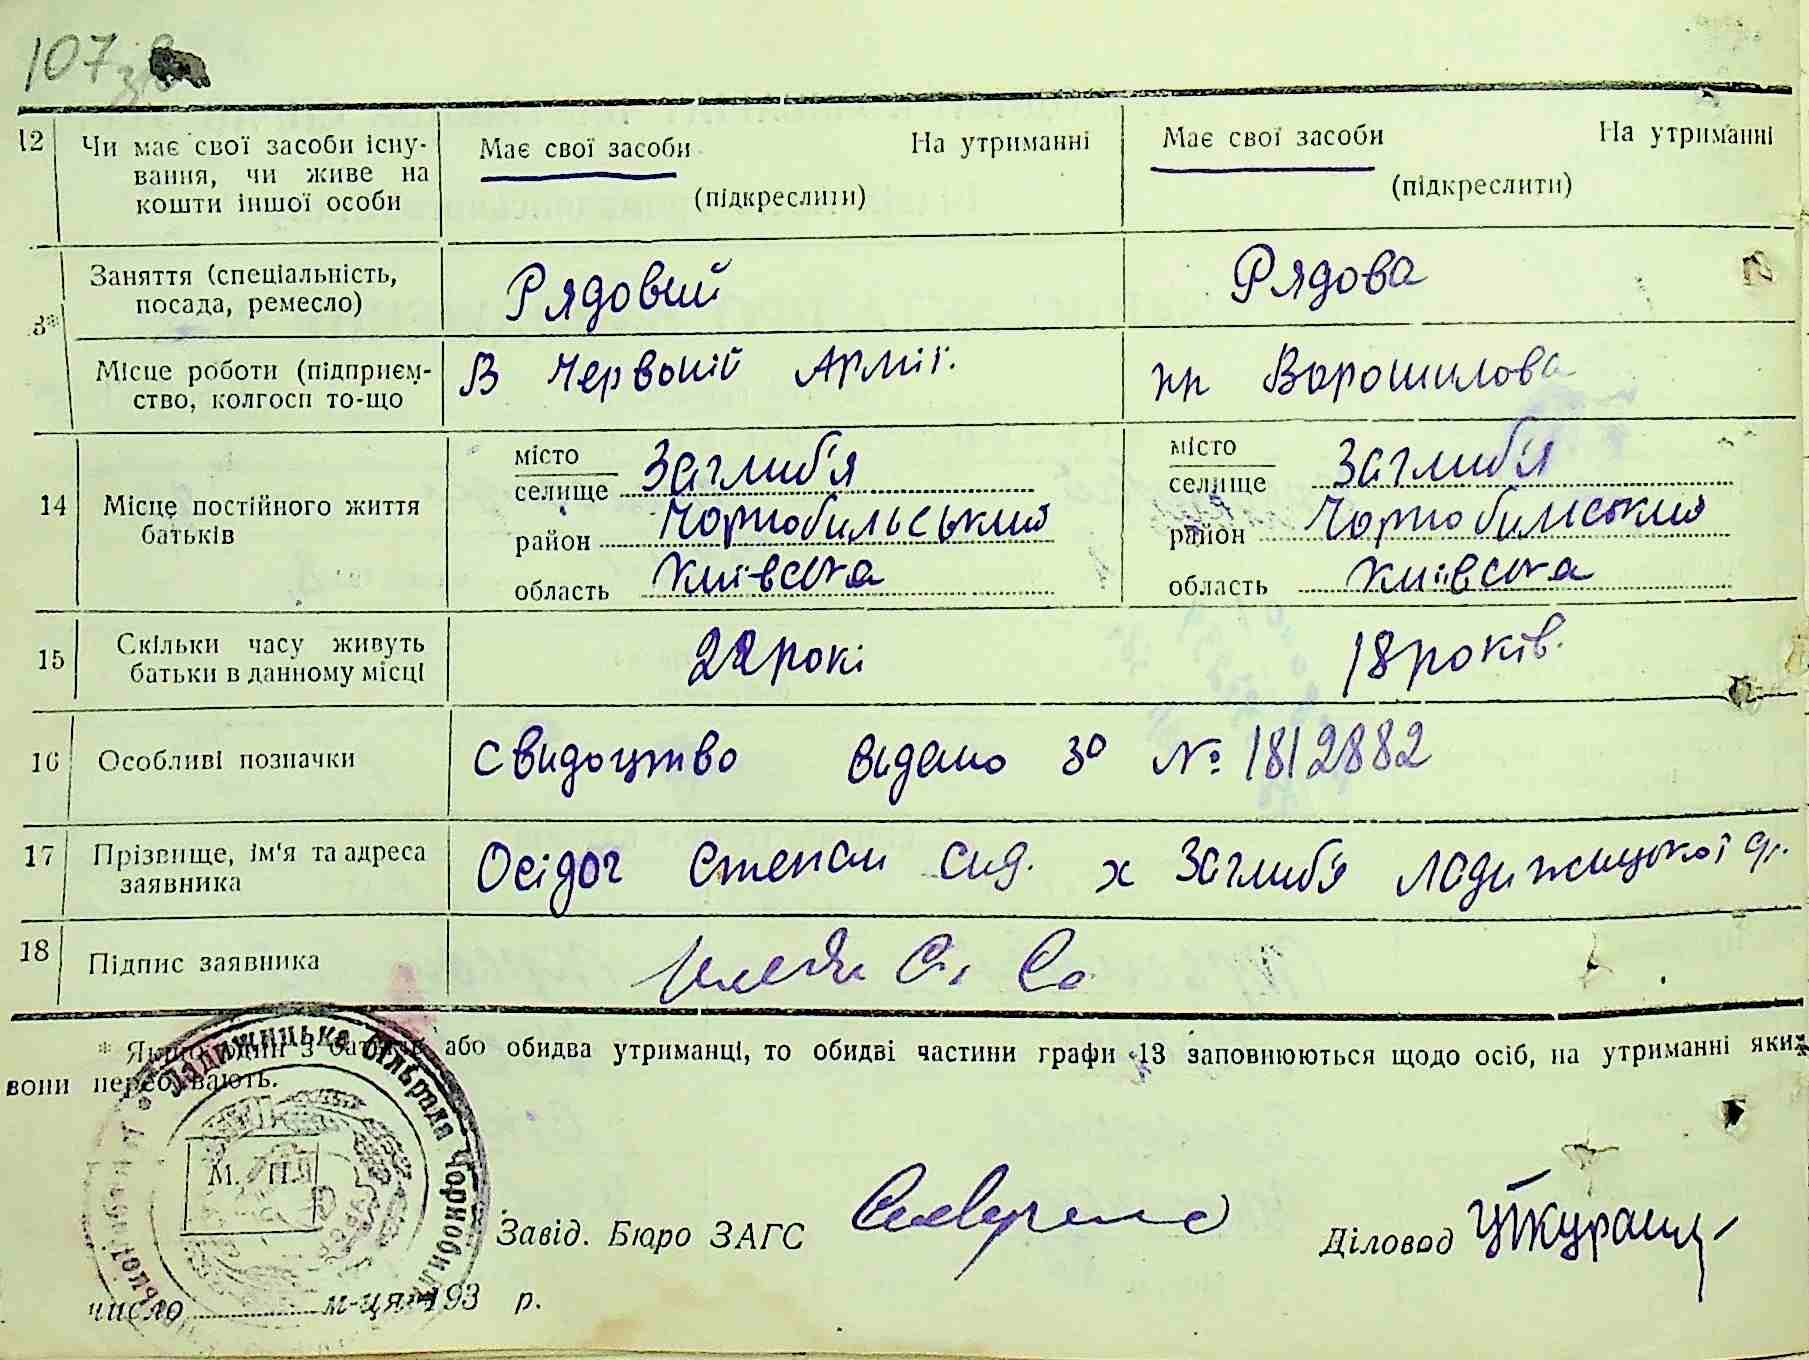 107 зв
12 Чи має свої засоби існу- Має свої засоби На утриманні Має свої засоби На утриманні
вання, чи живе на (підкреслити) (підкреслити)
кошти іншої особи
Заняття (спеціальність, Рядовий Рядова
посада, ремесло)
3*
Місце роботи (підприєм- В Червоній Армії. кп Ворошилова
ство, колгосп то-що
14 Місце постійного життя
батьків
місто
селище Заглиб'я
район Чорнобильський
область Київська
місто
селище Заглиб'я
район Чорнобильський
область Київська
15 Скільки часу живуть 22 рокі 18 років.
батьки в данному місці
16 Особливі позначки Свидоцтво видано за № 1812882
17 Прізвище, ім'я та адреса Осідач Степан Сид. х Заглиб'я Ладижицької с/.
заявника
18 Підпис заявника
* Якщо один з батьків або обидва утриманці, то обидві частини графи 13 заповнюються щодо осіб, на утриманні яких
вони перебувають.
Ладижицька сільрада Чорнобил
М. П.
Завід. Бюро ЗАГС
Діловод
число м-ця 193 р.